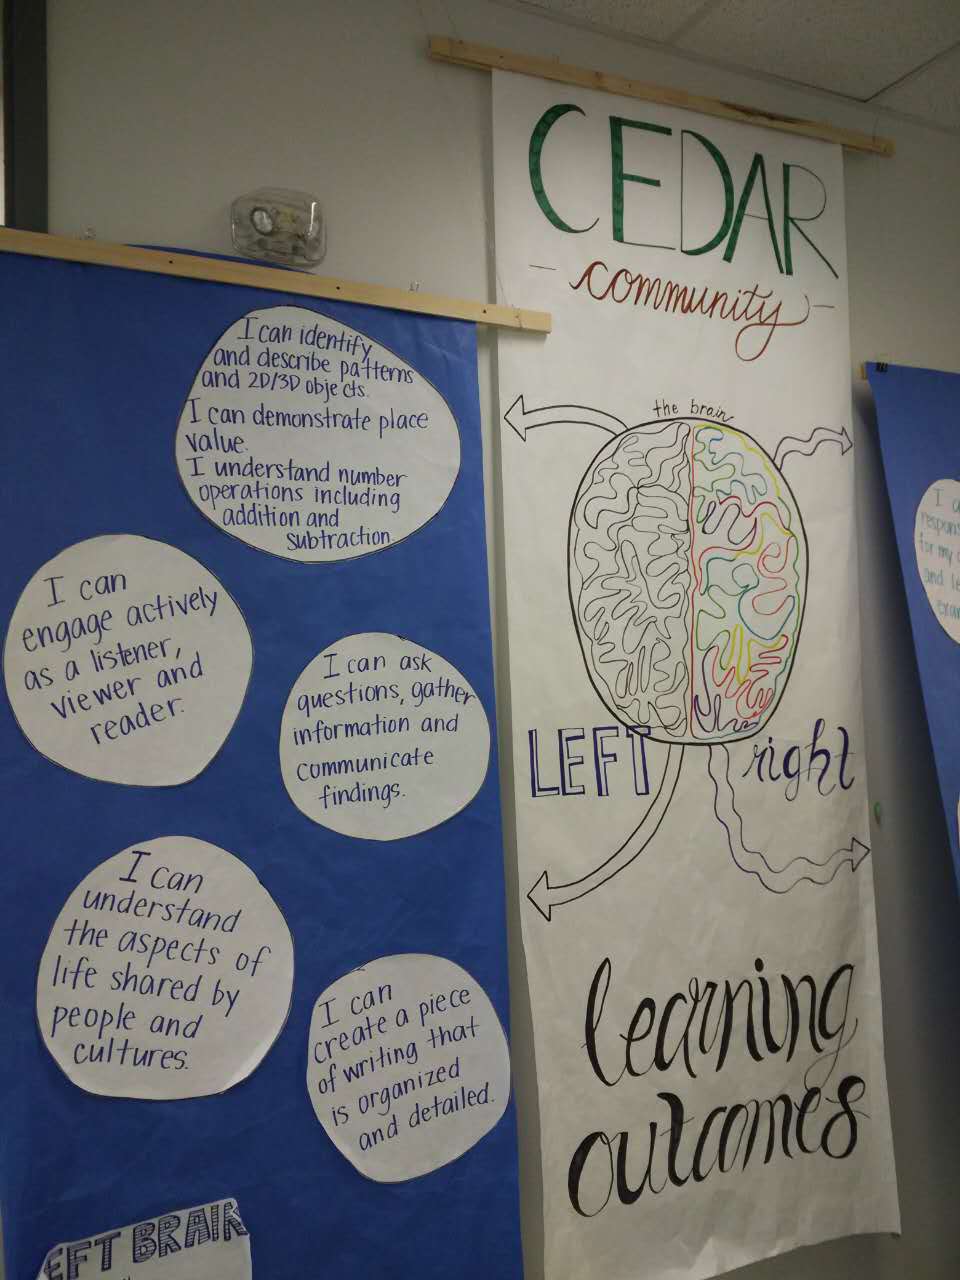 I can identify
and describe patterns
and 2D/3D objects.
I can demonstrate place
value.
I understand number
operations including
addition and
subtraction.
I can
engage actively
as a listener,
viewer and
reader.
I can ask
questions, gather
information and
communicate
findings.
I can
understand
the aspects of
life shared by
people and
cultures.
I can
create a piece
of writing that
is organized
and detailed.
BRAIN
CEDAR
community
the brain
LEFT
right
learning
outcomes
I
for my
and